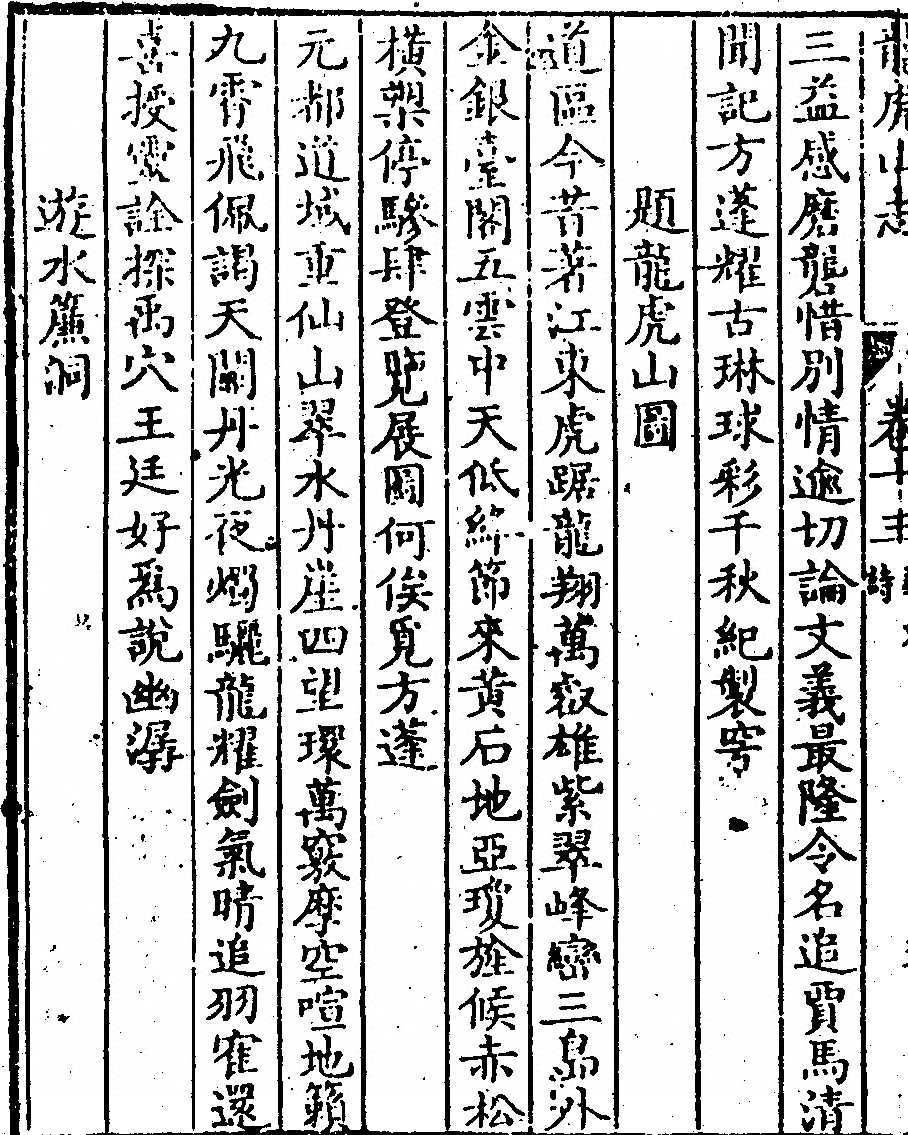 龍虎山志 卷十三 詩
三益感磨礱惜別情逾切論文義最隆令名追賈馬清
聞記方蓬耀古琳球彩千秋紀製穹
題龍虎山圖
道區今昔著江東虎踞龍翔萬嶽雄紫翠峰巒三島外
金銀臺閣五雲中天低絳節來黃石地亞瓊旌候赤松
橫槊停驂肆登覽展圖何俟覓方蓬
元都道域重仙山翠水丹崖四望環萬竅摩空喧地籟
九霄飛佩謁天關丹光夜燭驪龍耀劍氣晴追羽寉還
喜授靈詮探禹穴王廷好爲說幽潺
遊水簾洞